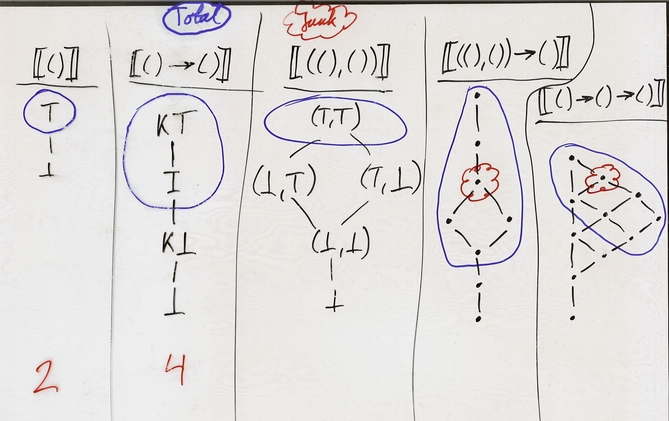 Total Junk
⟦()⟧ ⟦() → ()⟧ ⟦((),())⟧ ⟦((),()) → ()⟧
⟦() → () → ()⟧
T
⊥
KT
I
K⊥
⊥
(T,T)
(⊥,T) (T,⊥)
(⊥,⊥)
⊥
2 4